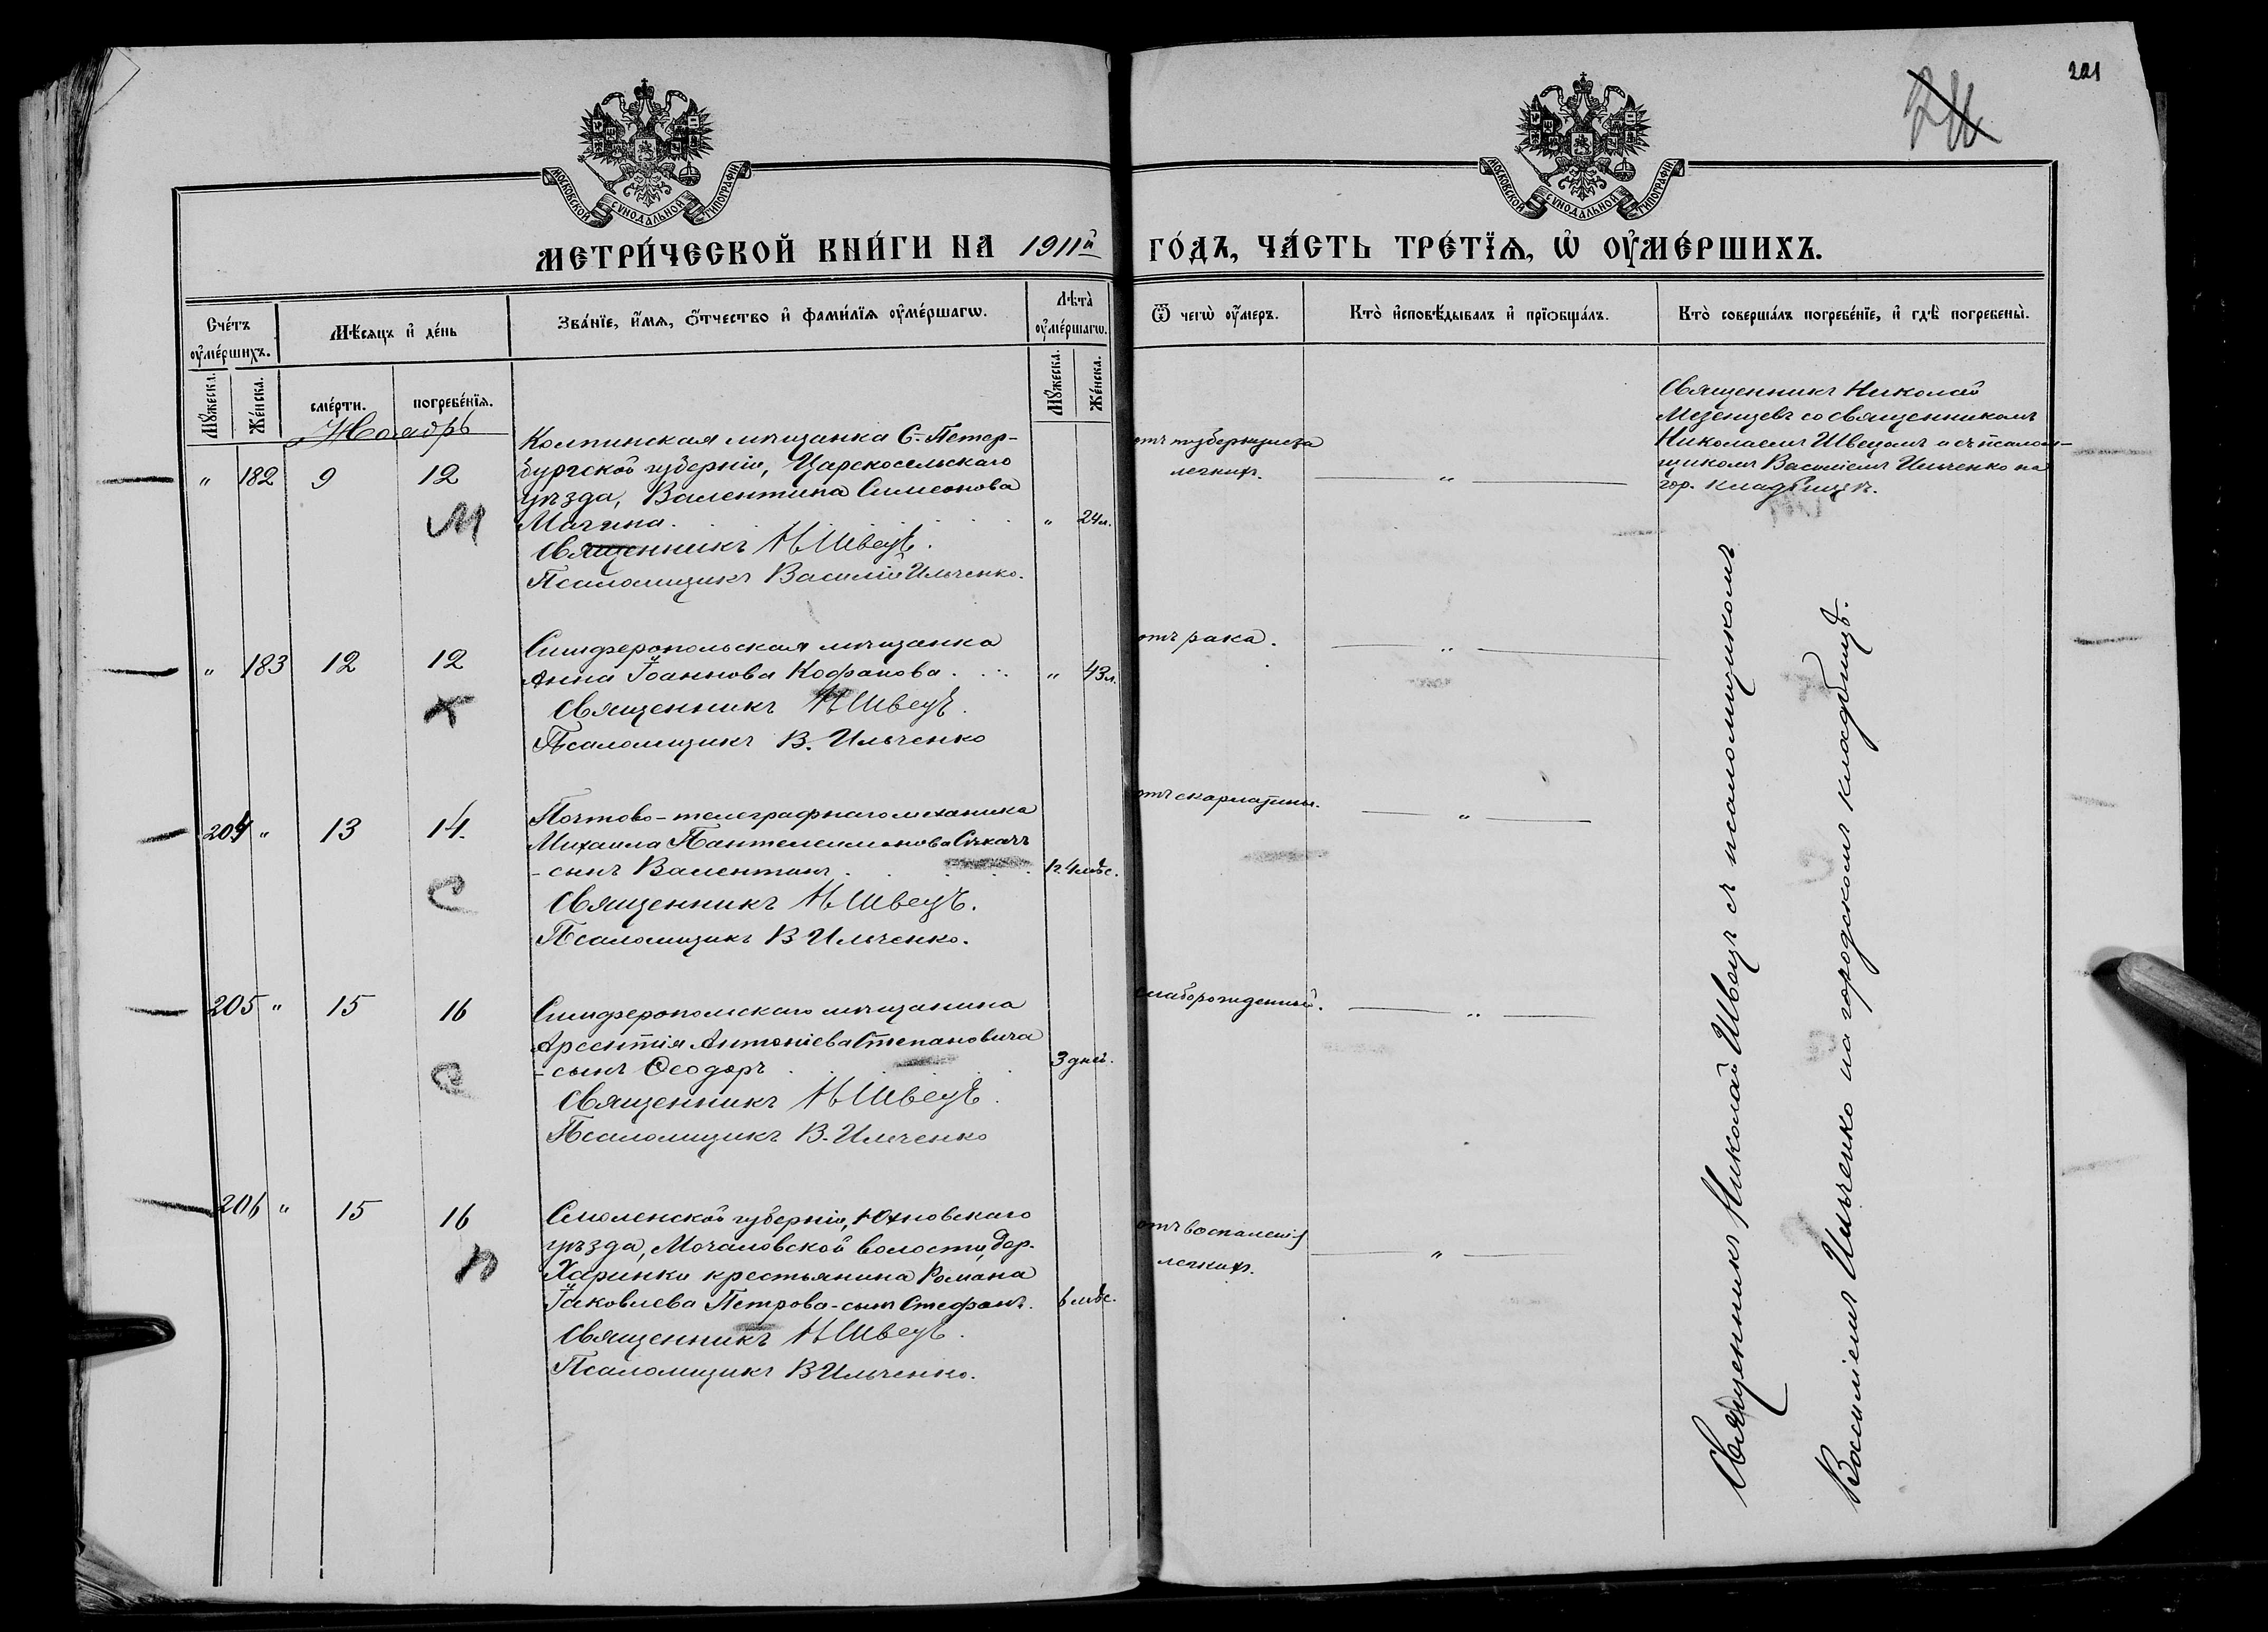 221
МОСКОВСКОЙ СУНОДАЛЬНОЙ ТИПОГРАФІИ
МОСКОВСКОЙ СУНОДАЛЬНОЙ ТИПОГРАФІИ
МЕТРИ́ЧЕСКОЙ КНИ́ГИ НА 1911й ГО́ДЪ, ЧА́СТЬ ТРЕ́ТІѦ, Ѡ҆ ОУ҆МЕ́РШИХЪ.
Сче́тъ оу҆ме́ршихъ.
Мѣ́сѧцъ и҆ де́нь
Зва́нїе, и҆́мѧ, ѻ҆́тчество и҆ фами́лїѧ оу҆ме́ршагѡ.
Лѣта̀ оу҆ме́ршагѡ.
Ѿ чегѡ̀ оу҆́меръ.
Кто̀ и҆сповѣ́дывалъ и҆ прїѡбща́лъ.
Кто̀ соверша́лъ погребе́нїе, и҆ гдѣ̀ погребены̀.
Мꙋ́жеска.
Же́нска.
сме́рти.
погребе́нїѧ.
Мꙋ́жеска.
Же́нска.
Ноябрь
" 182 9 12
Колпинская мѣщанка С.-Петер-
бургской губерніи, Царскосельскаго
уѣзда, Валентина Симеонова
" 24 л.
М
Священникъ Н Швецъ.
Псаломщикъ Василій Ильченко.
отъ туберкулеза
легкихъ.
"
Священникъ Николай
Мезенцевъ со священникомъ
Николаемъ Швецомъ и съ псалом-
щикомъ Василіемъ Ильченко на
гор. кладбищѣ.
" 183 12 12
Симферопольская мѣщанка
Анна Іоаннова Кофанова . . . " 43 л.
К
Священникъ Н Швецъ.
Псаломщикъ В. Ильченко
отъ рака.
"
204 " 13 14.
Почтово-телеграфнаго механика
Михаила Пантелеимонова Сѣкачъ
- сынъ Валентинъ . . . . 1 г. 4 мѣс.
С
Священникъ Н Швецъ.
Псаломщикъ В Ильченко.
отъ скарлатины.
"
205 " 15 16
Симферопольскаго мѣщанина
Арсентія Антоніева Степановича
- сынъ Ѳеодоръ . . . . 3 дней.
С
Священникъ Н Швецъ.
Псаломщикъ В. Ильченко
слаборожденный.
"
206 " 15 16
Смоленской губерніи, Юхновскаго
уѣзда, Мочаловской волости, дер.
Харинки крестьянина Романа
Іаковлева Петрова - сынъ Стефанъ. 6 мѣс.
П
Священникъ Н Швецъ.
Псаломщикъ В Ильченко.
отъ воспаленія
легкихъ.
"
Священникъ Николай Швецъ съ псаломщикомъ
Василіемъ Ильченко на городскомъ кладбищѣ.